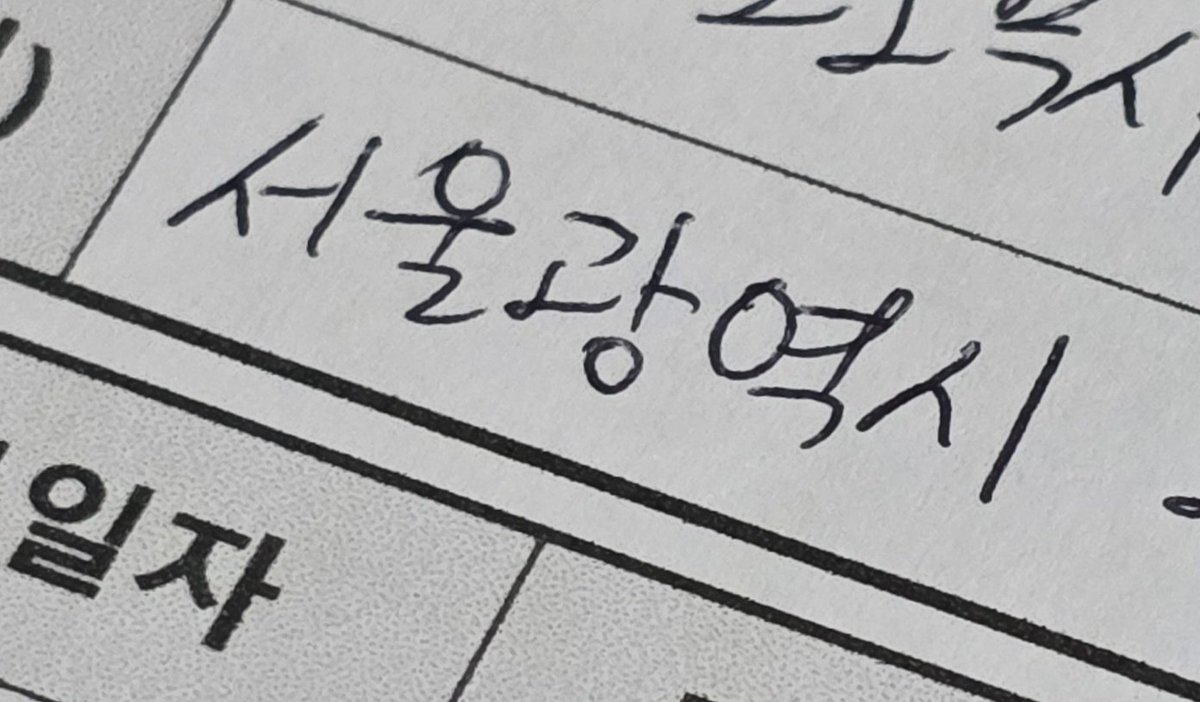 서울광역시
일자